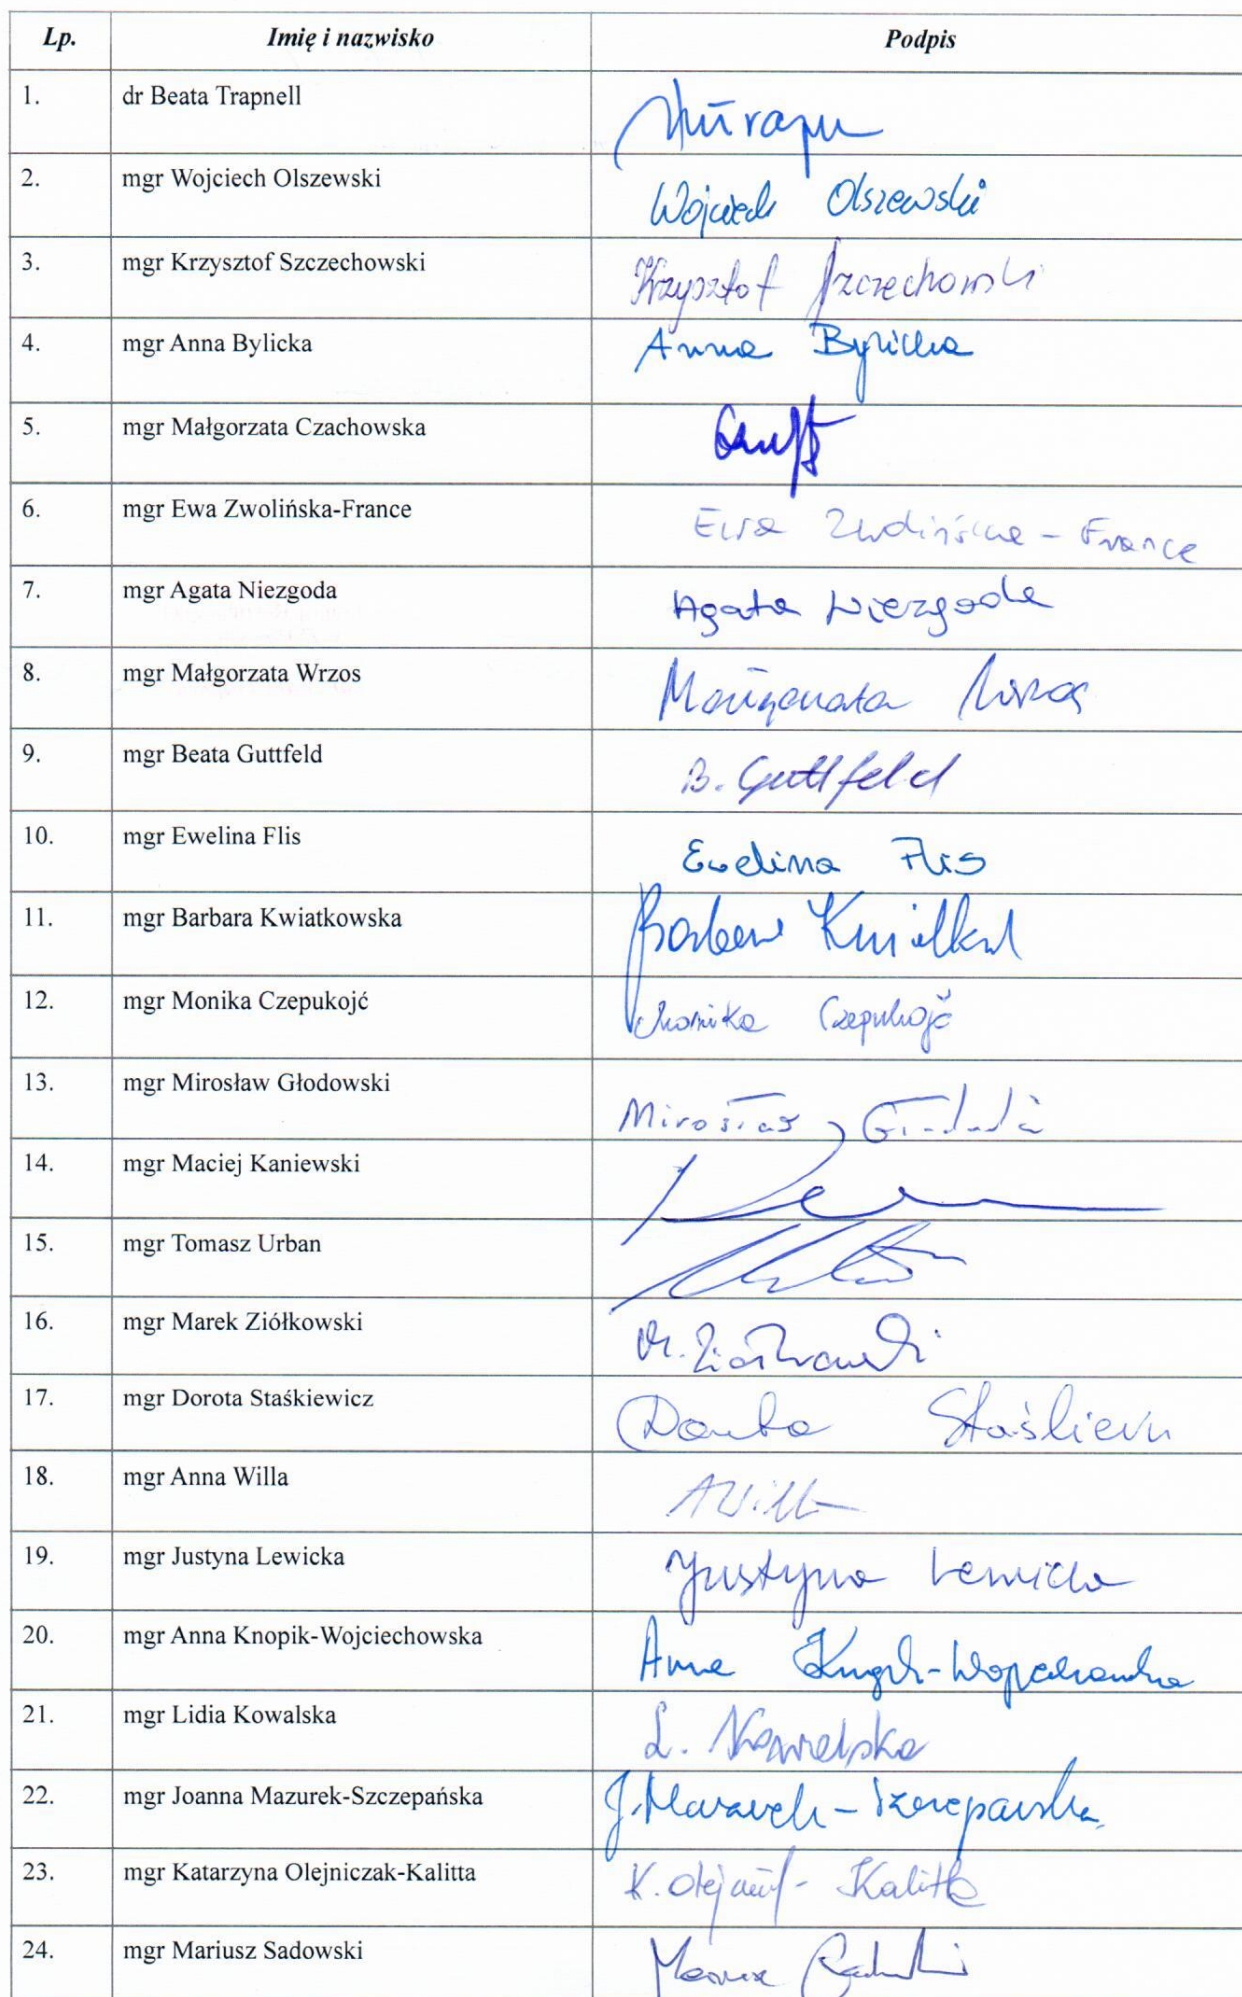 Lp. Imię i nazwisko Podpis
1. dr Beata Trapnell
2. mgr Wojciech Olszewski Wojciech Olszewski
3. mgr Krzysztof Szczechowski Krzysztof Szczechowski
4. mgr Anna Bylicka Anna Bylicka
5. mgr Małgorzata Czachowska
6. mgr Ewa Zwolińska-France Ewa Zwolińska - France
7. mgr Agata Niezgoda Agata Niezgoda
8. mgr Małgorzata Wrzos Małgorzata Wrzos
9. mgr Beata Guttfeld B. Guttfeld
10. mgr Ewelina Flis Ewelina Flis
11. mgr Barbara Kwiatkowska
12. mgr Monika Czepukojć Monika Czepukojć
13. mgr Mirosław Głodowski Mirosław
14. mgr Maciej Kaniewski
15. mgr Tomasz Urban
16. mgr Marek Ziółkowski M. Ziółkowski
17. mgr Dorota Staśkiewicz Dorota
18. mgr Anna Willa
19. mgr Justyna Lewicka Justyna Lewicka
20. mgr Anna Knopik-Wojciechowska Anna
21. mgr Lidia Kowalska L. Kowalska
22. mgr Joanna Mazurek-Szczepańska J. Mazurek - Szczepańska
23. mgr Katarzyna Olejniczak-Kalitta K. Kalitta
24. mgr Mariusz Sadowski